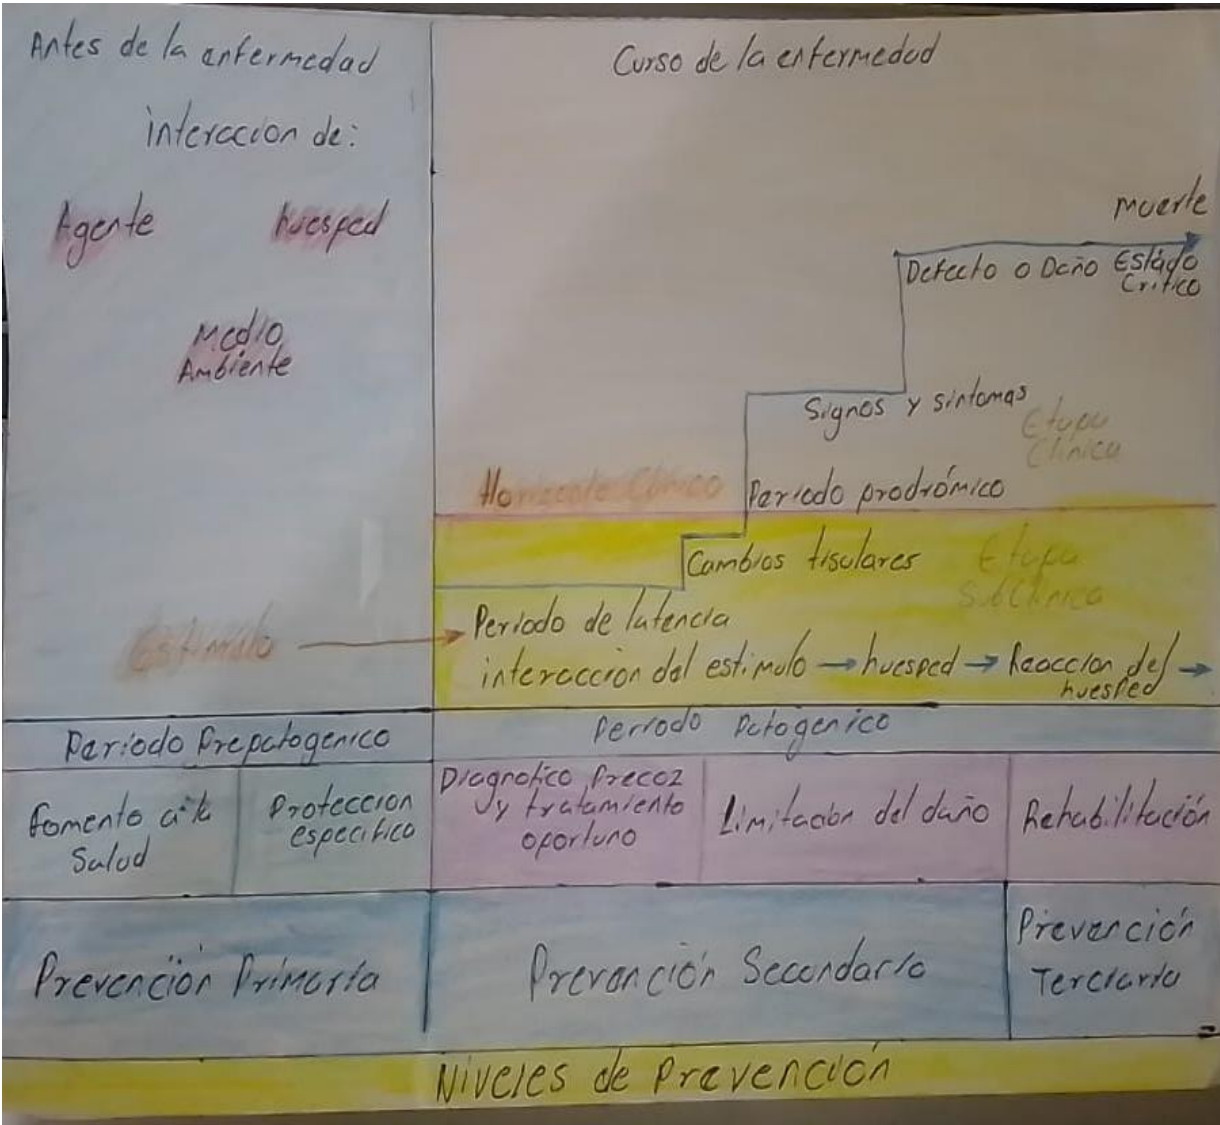 Antes de la enfermedad
interaccion de:
Agente
huesped
Medio
Ambiente
Estimulo
Curso de la enfermedad
Muerte
Defecto o Daño Estado
Critico
Signos y sintomas
Etapa
Clinica
Horizonte Clinico
Periodo prodrómico
Cambios tisulares
Etapa
Subclinica
Periodo de latencia
interaccion del estimulo → huesped → Reaccion del →
huesped
Periodo Prepatogenico
Periodo Patogenico
Fomento a la
Salud
Protección
especifico
Diagnotico Precoz
y tratamiento
oportuno
Limitación del daño
Rehabilitación
Prevención Primaria
Prevención Secundario
Prevención
Terciaria
Niveles de Prevención